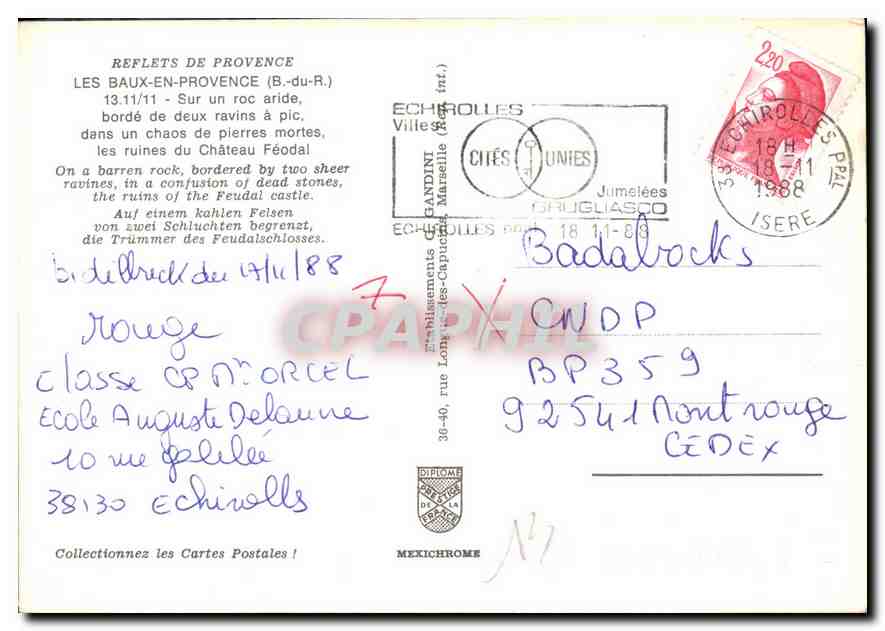 REFLETS DE PROVENCE
LES BAUX-EN-PROVENCE (B.-du-R.)
13.11/11 - Sur un roc aride,
bordé de deux ravins à pic,
dans un chaos de pierres mortes,
les ruines du Château Féodal
On a barren rock, bordered by two sheer
ravines, in a confusion of dead stones,
the ruins of the Feudal castle.
Auf einem kahlen Felsen
von zwei Schluchten begrenzt,
die Trümmer des Feudalschlosses.
du 17/11/88
rouge
Classe CP Mme ORCEL
Ecole Auguste Delaune
10 rue galilée
38130 Echirolls
Collectionnez les Cartes Postales !
Etablissements C. GANDINI
36-40, rue Longue-des-Capucins, Marseille (Rep. int.)
DIPLOME
PRESTIGE
DE LA
FRANCE
MEXICHROME
ECHIROLLES
Villes
CITÉS UNIES
Jumelées
GRUGLIASCO
ECHIROLLES PPAL 18 11-88
2,20
38 ECHIROLLES PPAL
18H
18-11
1988
ISERE
Badabocks
CNDP
BP 359
92541 Montrouge
CEDEX
7
CPAPHIL